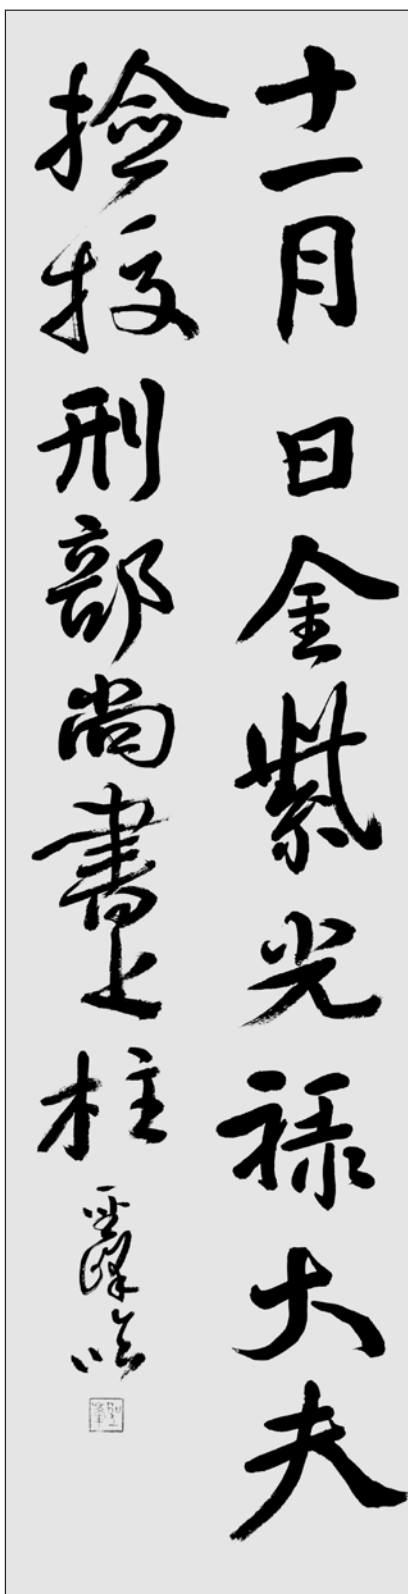 十一月日金紫光祿大夫
撿挍刑部尚書上柱